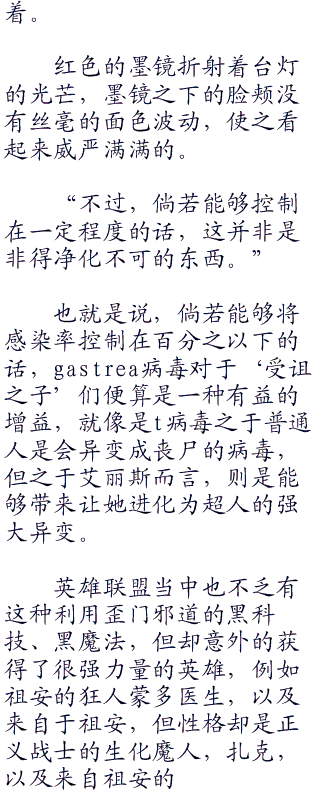 着。
红色的墨镜折射着台灯
的光芒，墨镜之下的脸颊没
有丝毫的面色波动，使之看
起来威严满满的。
“不过，倘若能够控制
在一定程度的话，这并非是
非得净化不可的东西。”
也就是说，倘若能够将
感染率控制在百分之以下的
话，gastrea病毒对于‘受诅
之子’们便算是一种有益的
增益，就像是t病毒之于普通
人是会异变成丧尸的病毒，
但之于艾丽斯而言，则是能
够带来让她进化为超人的强
大异变。
英雄联盟当中也不乏有
这种利用歪门邪道的黑科
技、黑魔法，但却意外的获
得了很强力量的英雄，例如
祖安的狂人蒙多医生，以及
来自于祖安，但性格却是正
义战士的生化魔人，扎克，
以及来自祖安的